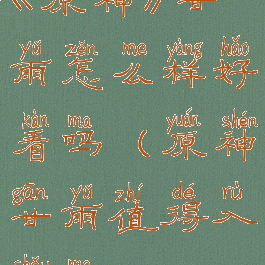 《原神》甘
yǔ zěn me yàng hǎo
雨怎么样好
kàn ma yuán shén
看吗（原神
gān yǔ zhí dé rù
甘雨值得入
shǒu ma